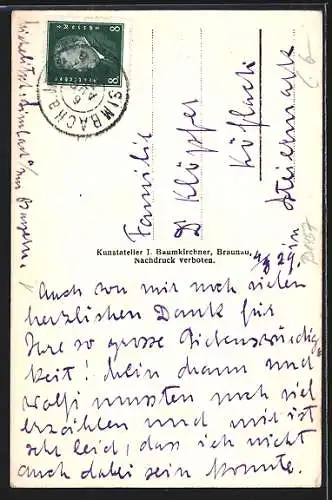 8
SIMBACH
Familie
Dr Klöpfer
Köflach
in Steiermark
Kunstatelier J. Baumkirchner, Braunau.
Nachdruck verboten.
29.
Auch von mir noch vielen
herzlichen Dank für
Ihre so grosse Liebenswürdig
keit! Mein Mann und
Wolfi mussten noch viel
erzählen und mir ist
sehr leid, dass ich nicht
auch dabei sein konnte.